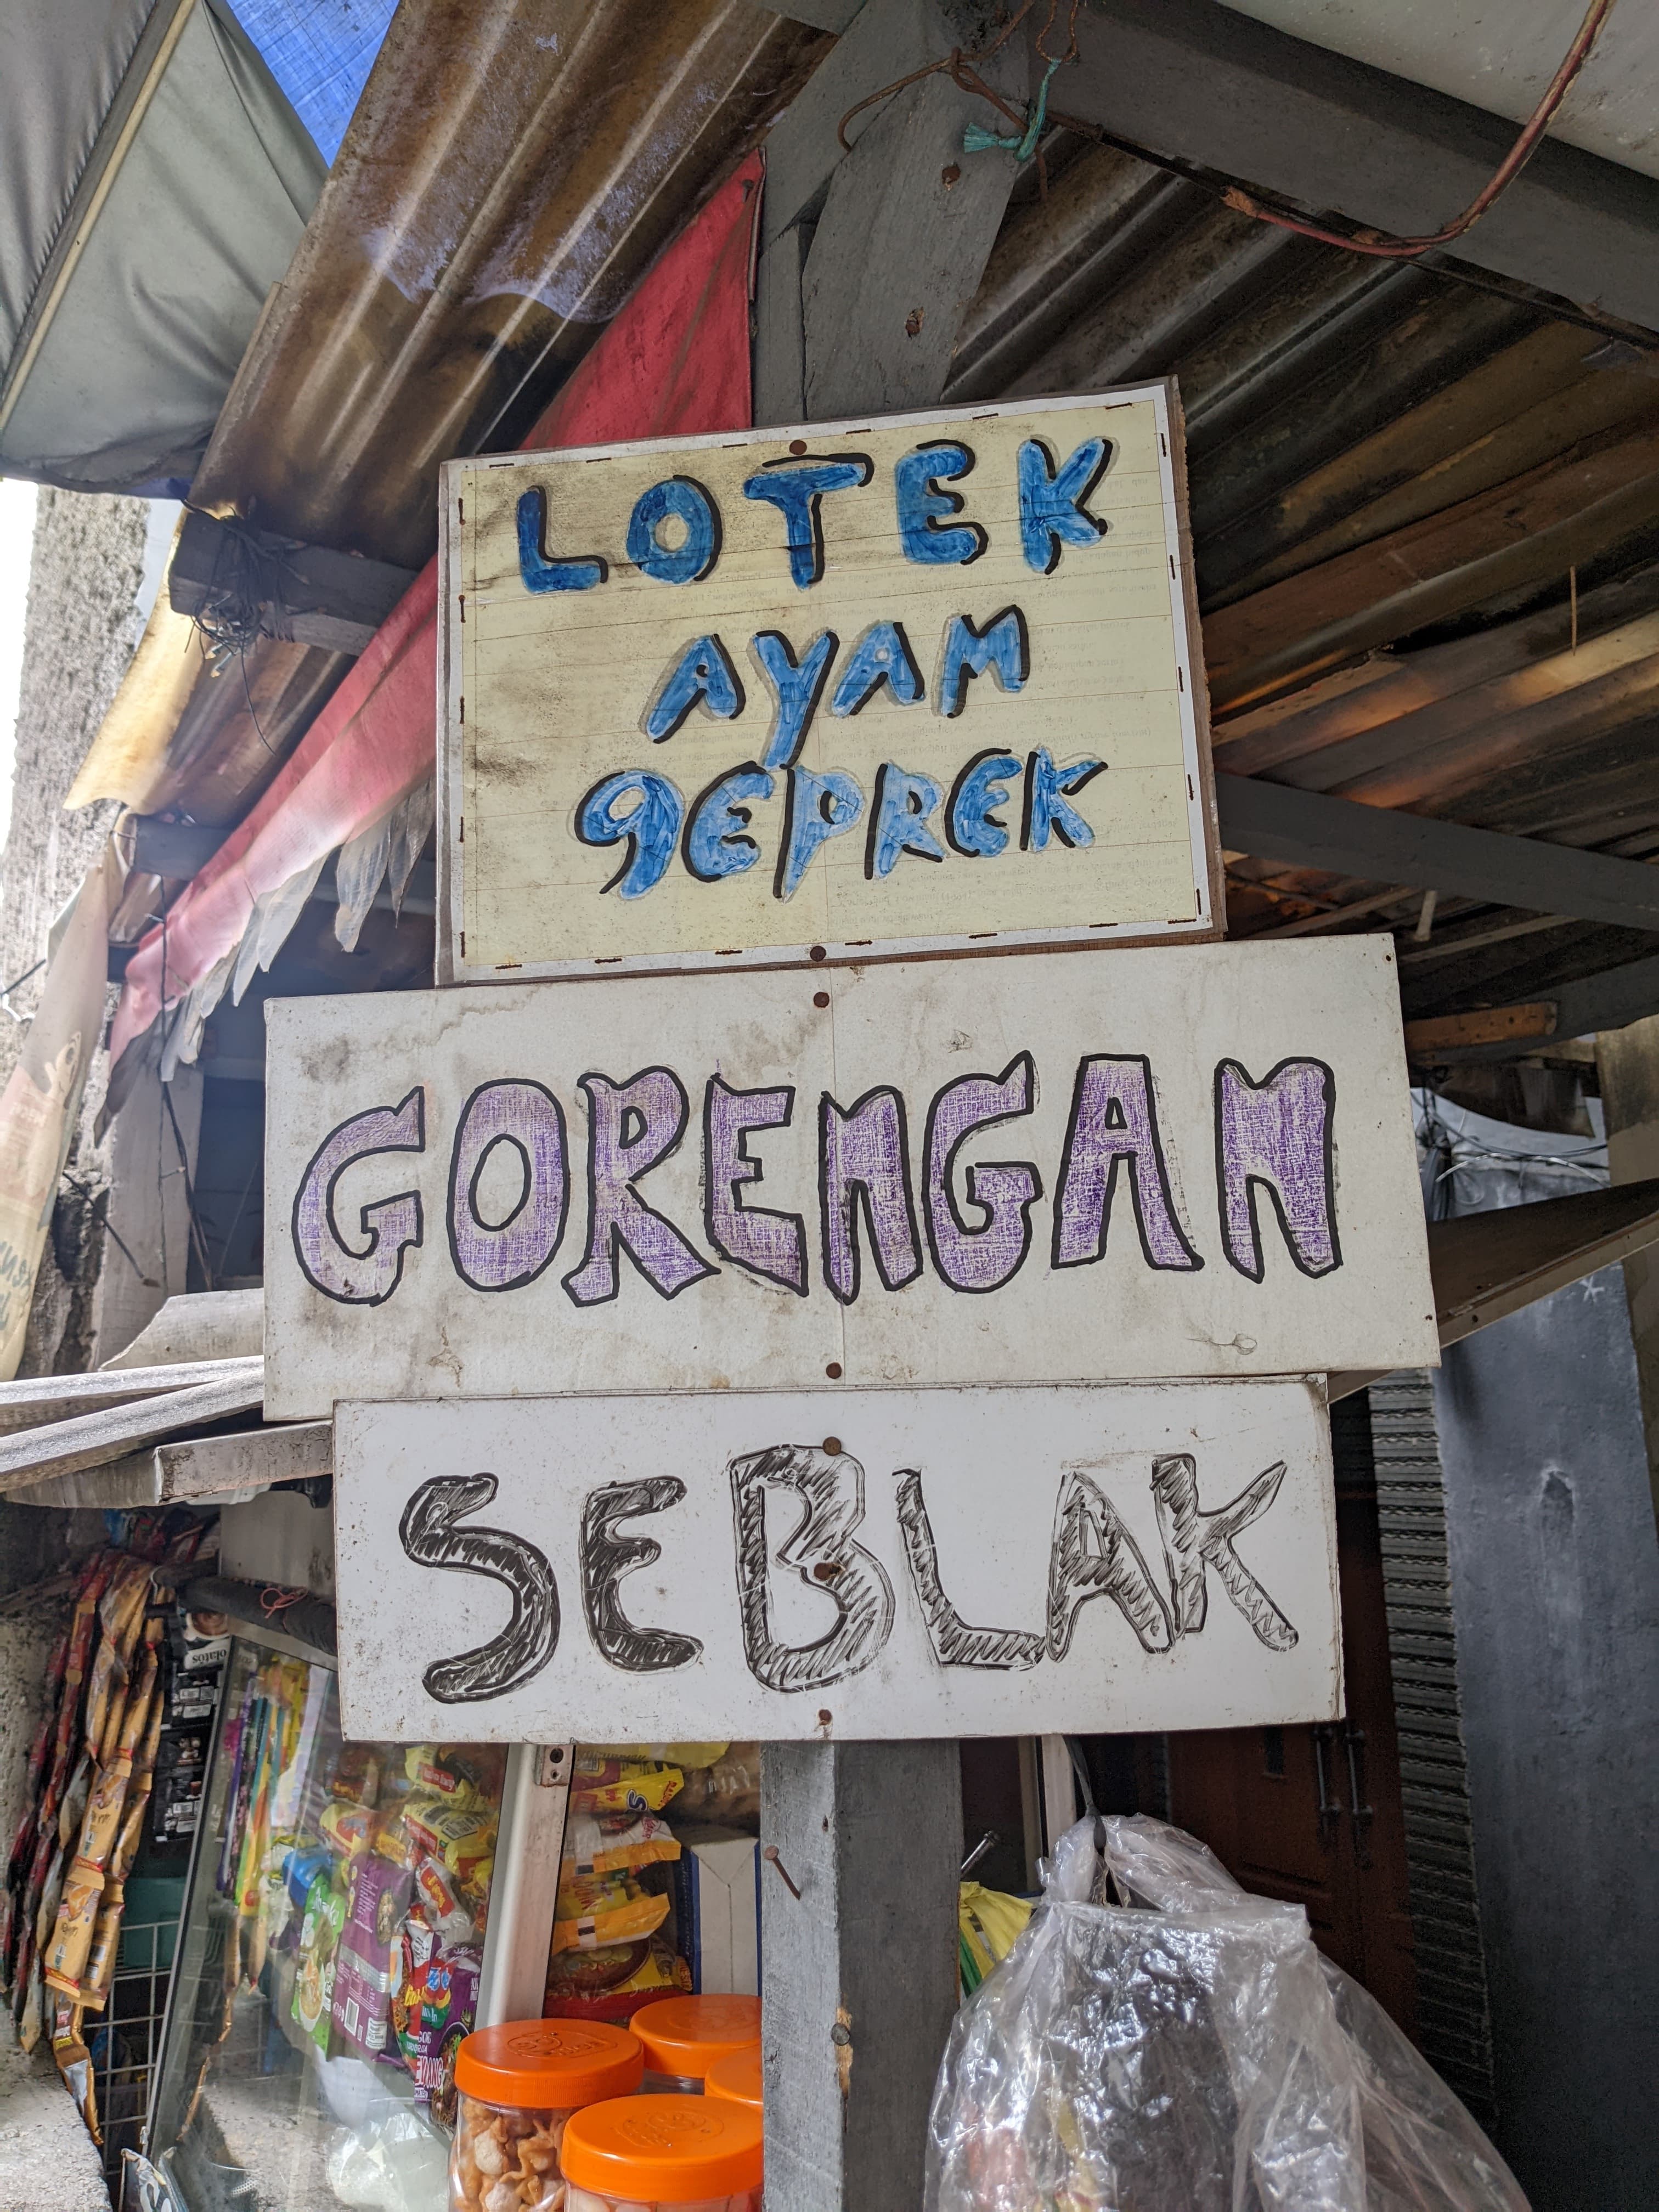 LOTEK
AYAM
gEPREK
GORENGAN
SEBLAK